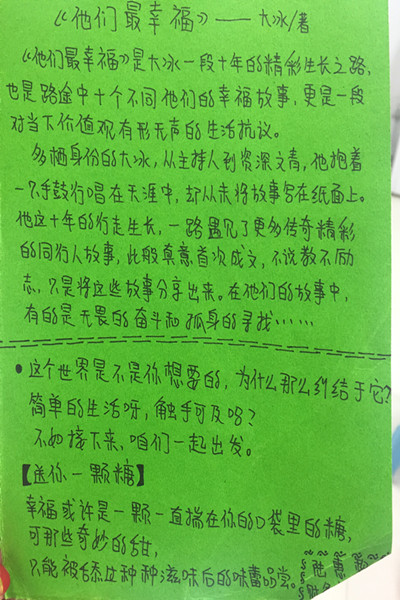 《他们最幸福》——大冰/著
《他们最幸福》是大冰一段十年的精彩生长之路,
也是路途中十个不同他们的幸福故事,更是一段
对当下价值观有形无声的生活抗议。
多栖身份的大冰,从主持人到资深文青,他抱着
一只手鼓行唱在天涯中,却从未将故事写在纸面上。
他这十年的行走生长,一路遇见了更多传奇精彩
的同行人故事,此般真意首次成文,不说教不励
志,只是将这些故事分享出来。在他们的故事中,
有的是无畏的奋斗和孤身的寻找……
●这个世界是不是你想要的,为什么那么纠结于它?
简单的生活呀,触手可及吗?
不如接下来,咱们一起出发。
【送你一颗糖】
幸福或许是一颗一直揣在你的口袋里的糖,
可那些奇妙的甜,
只能被舔过种种滋味后的味蕾品尝。